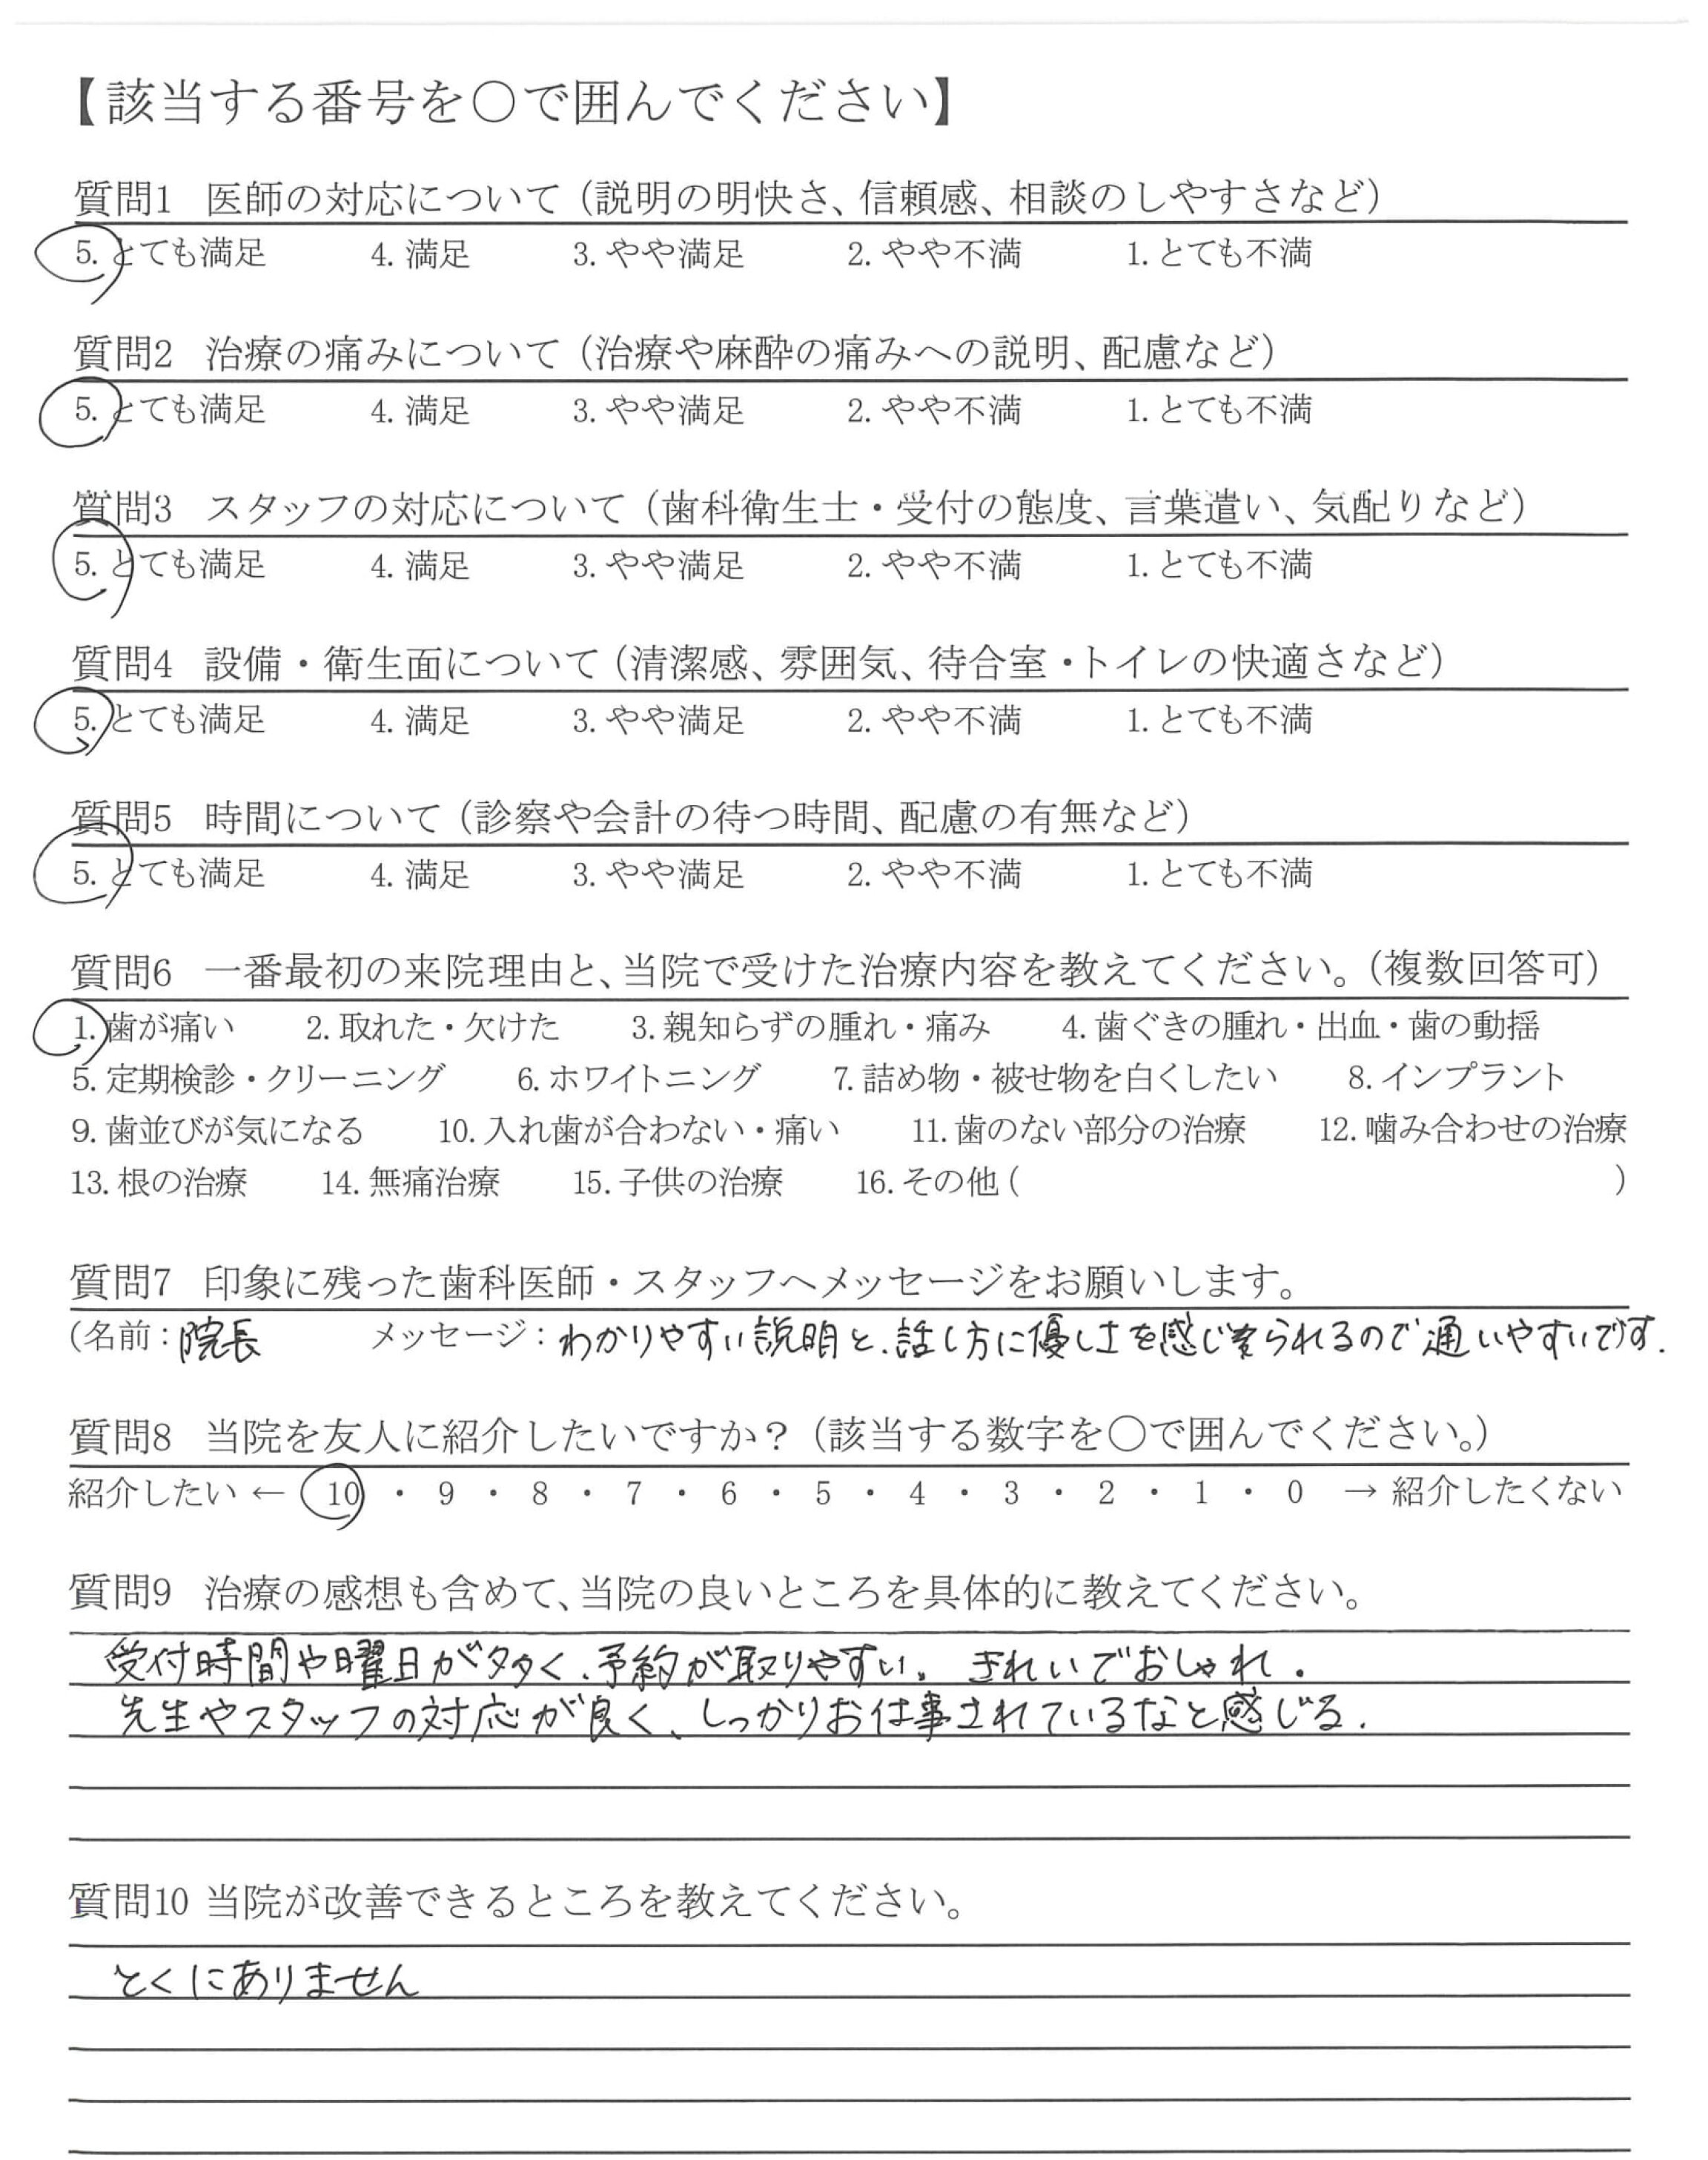 【該当する番号を〇で囲んでください】
質問1 医師の対応について（説明の明快さ、信頼感、相談のしやすさなど）
5. とても満足 4. 満足 3. やや満足 2. やや不満 1. とても不満
質問2 治療の痛みについて（治療や麻酔の痛みへの説明、配慮など）
5. とても満足 4. 満足 3. やや満足 2. やや不満 1. とても不満
質問3 スタッフの対応について（歯科衛生士・受付の態度、言葉遣い、気配りなど）
5. とても満足 4. 満足 3. やや満足 2. やや不満 1. とても不満
質問4 設備・衛生面について（清潔感、雰囲気、待合室・トイレの快適さなど）
5. とても満足 4. 満足 3. やや満足 2. やや不満 1. とても不満
質問5 時間について（診察や会計の待つ時間、配慮の有無など）
5. とても満足 4. 満足 3. やや満足 2. やや不満 1. とても不満
質問6 一番最初の来院理由と、当院で受けた治療内容を教えてください。（複数回答可）
1. 歯が痛い 2. 取れた・欠けた 3. 親知らずの腫れ・痛み 4. 歯ぐきの腫れ・出血・歯の動揺
5. 定期検診・クリーニング 6. ホワイトニング 7. 詰め物・被せ物を白くしたい 8. インプラント
9. 歯並びが気になる 10. 入れ歯が合わない・痛い 11. 歯のない部分の治療 12. 噛み合わせの治療
13. 根の治療 14. 無痛治療 15. 子供の治療 16. その他（ ）
質問7 印象に残った歯科医師・スタッフへメッセージをお願いします。
（名前：院長 メッセージ：わかりやすい説明と、話し方に優しさを感じられるので通いやすいです.
質問8 当院を友人に紹介したいですか？（該当する数字を〇で囲んでください。）
紹介したい ← 10 ・ 9 ・ 8 ・ 7 ・ 6 ・ 5 ・ 4 ・ 3 ・ 2 ・ 1 ・ 0 → 紹介したくない
質問9 治療の感想も含めて、当院の良いところを具体的に教えてください。
受付時間や曜日が多く、予約が取りやすい。きれいでおしゃれ.
先生やスタッフの対応が良く、しっかりお仕事されているなと感じる.
質問10 当院が改善できるところを教えてください。
とくにありません